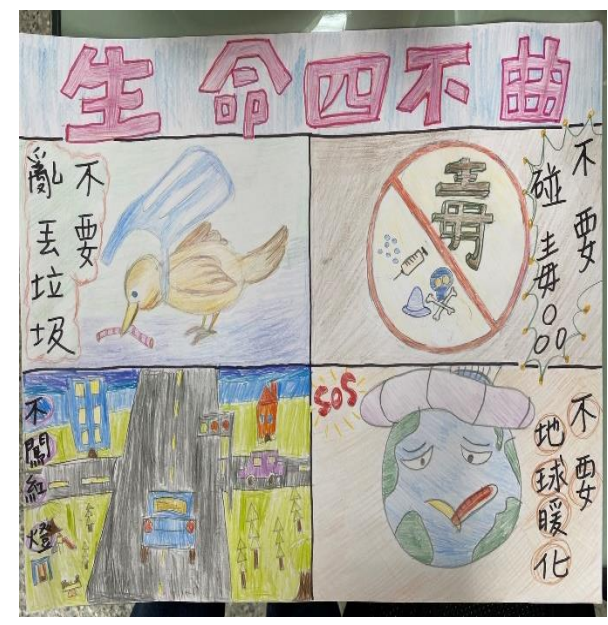 生命四不曲
不要
亂丟垃圾
毒
不要
碰毒。。。
不闖紅燈
SOS
不要
地球暖化